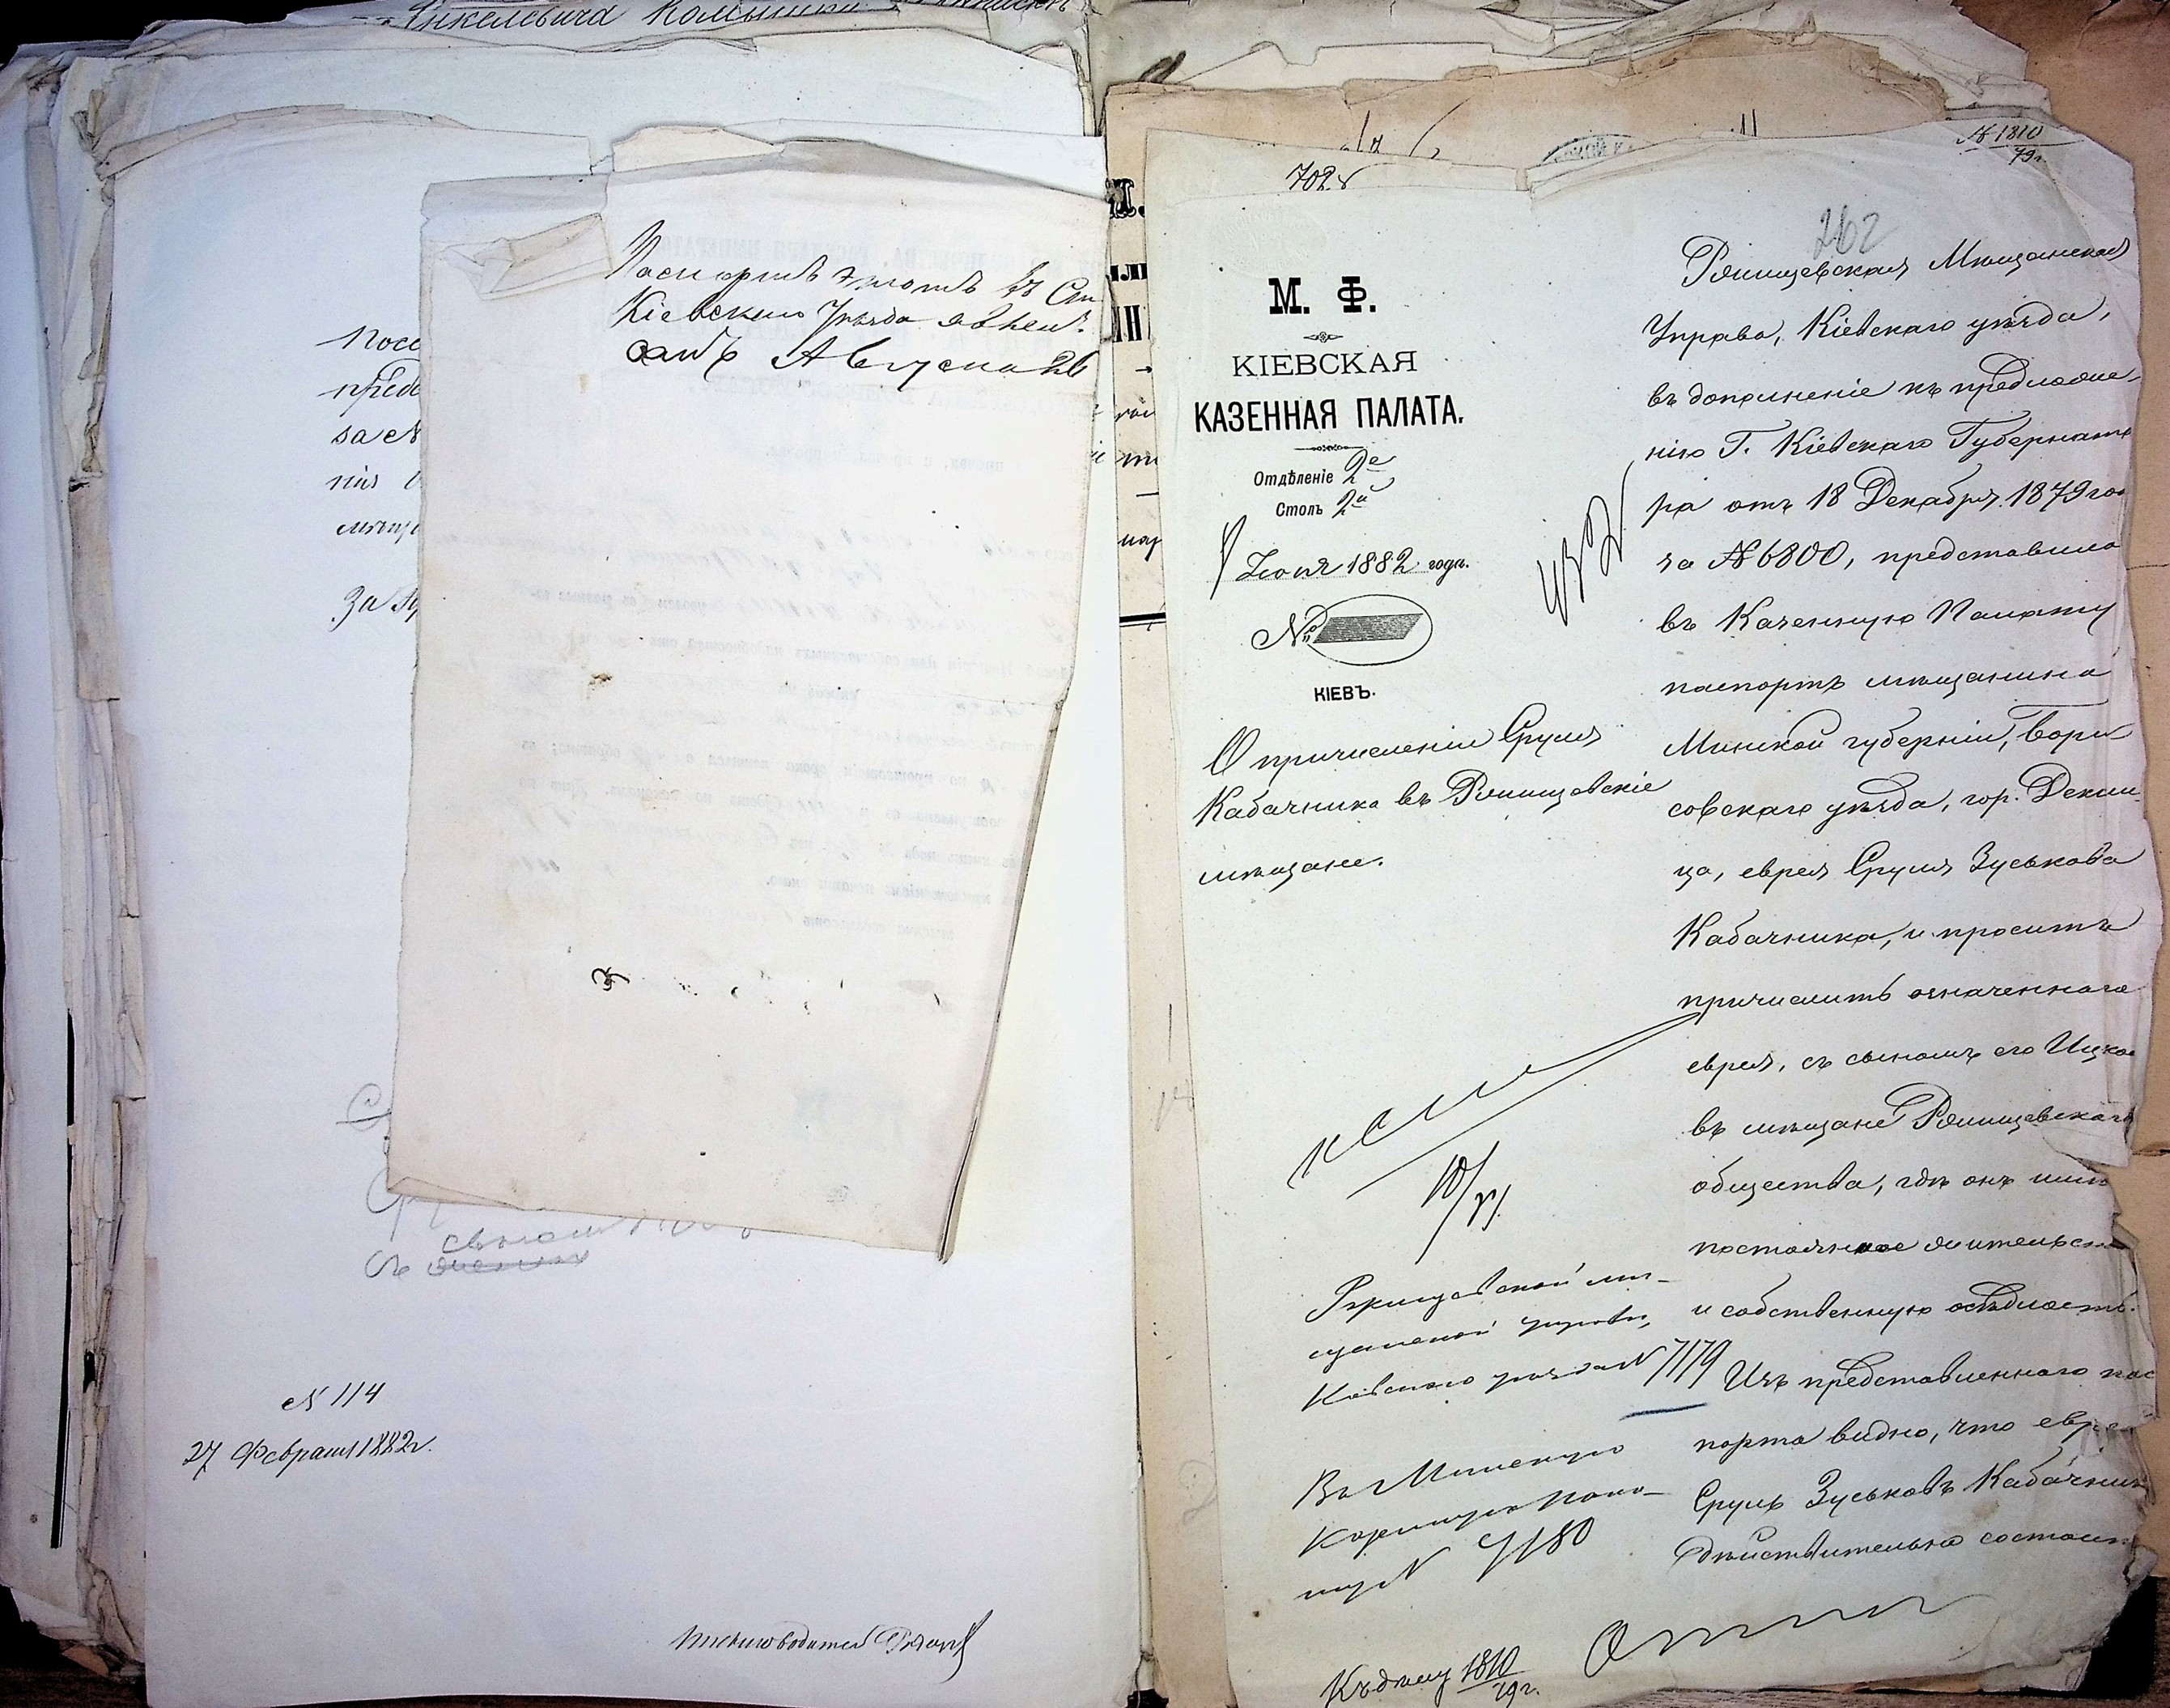 Янкелевича
Посс
предс
за №
нія
мѣщ
За
Паспортъ этотъ въ
Кіевскаго Уѣзда явлен.
Августа 26
сыномъ
Съ
№ 114
27 Февраля 1882 г.
Письмоводитель
№ 1810
79 г.
702
262
М. Ф.
КІЕВСКАЯ
КАЗЕННАЯ ПАЛАТА.
Отдѣленіе 2е
Столъ 2й
Іюня 1882 года.
№
КІЕВЪ.
О причисленіи Сруля
Кабачника въ Ржищевскіе
мѣщане.
Ржищевская Мѣщанская
Управа, Кіевскаго уѣзда,
въ дополненіе къ предложе-
нію Г. Кіевскаго Губернато
ра отъ 18 Декабря 1879 го
за № 6800, представила
въ Казенную Палату
паспортъ мѣщанина
Минской губерніи, Бори
совскаго уѣзда, гор. Докши
ца, еврея Сруля Зуськова
Кабачника, и проситъ
причислить означеннаго
еврея, съ сыномъ его Ицко
въ мѣщане Ржищевскаго
общества, гдѣ онъ имѣ
постоянное жительст
и собственную осѣдлость.
Изъ представленнаго пас
порта видно, что еврей
Сруль Зуськовъ Кабачник
дѣйствительно состоит
10/VI
Ржищевской мѣ-
щанской управѣ,
Кіевскаго уѣзда № 7179
Въ Минскую
Казенную Пала-
ту № 7180
Къ дѣлу 1810
79 г.